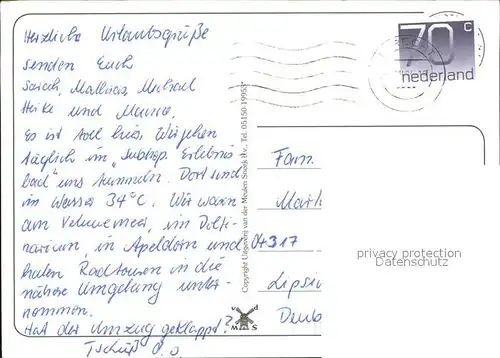 Herzliche Urlaubsgrüße
senden Euch
Sarah, Matthias, Michael
Heike und
Es ist toll hier. Wir gehen
täglich im „subtrop. Erlebnis
bad“ uns tummeln. Dort sind
im Wasser 34°C. Wir waren
am Veluwemeer, im Dolfi-
narium, in Apeldorn und
haben Radtouren in die
nähere Umgebung unter-
nommen.
Hat der Umzug geklappt?
Tschüß
Copyright Uitgeverij van der Meulen Sneek b.v., Tel. 05150-19953*
v d
M S
70 c
nederland
Fam.
04317
Leipzi
Deuts
privacy protection
Datenschutz